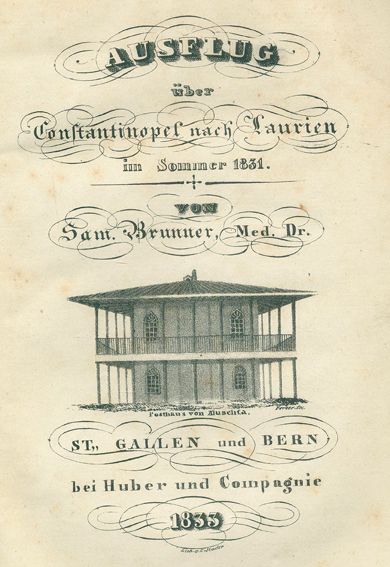 AUSFLUG
über
Constantinopel nach Taurien
im Sommer 1831.
VON
Sam. Brunner, Med. Dr.
Posthaus von Aluschta.
ST. GALLEN und BERN
bei Huber und Compagnie
1833